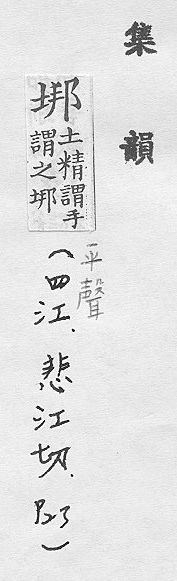 集韻
垹
土精謂手
謂之垹
平聲
(四江.悲江切.P23)